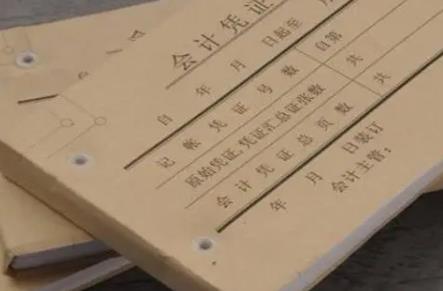 会计凭证
自 年 月 日起至
记帐凭证号数 自第
原始凭证,凭证汇总证张数 共
会计凭证总页数 共
年 月 日装订
会计主管: